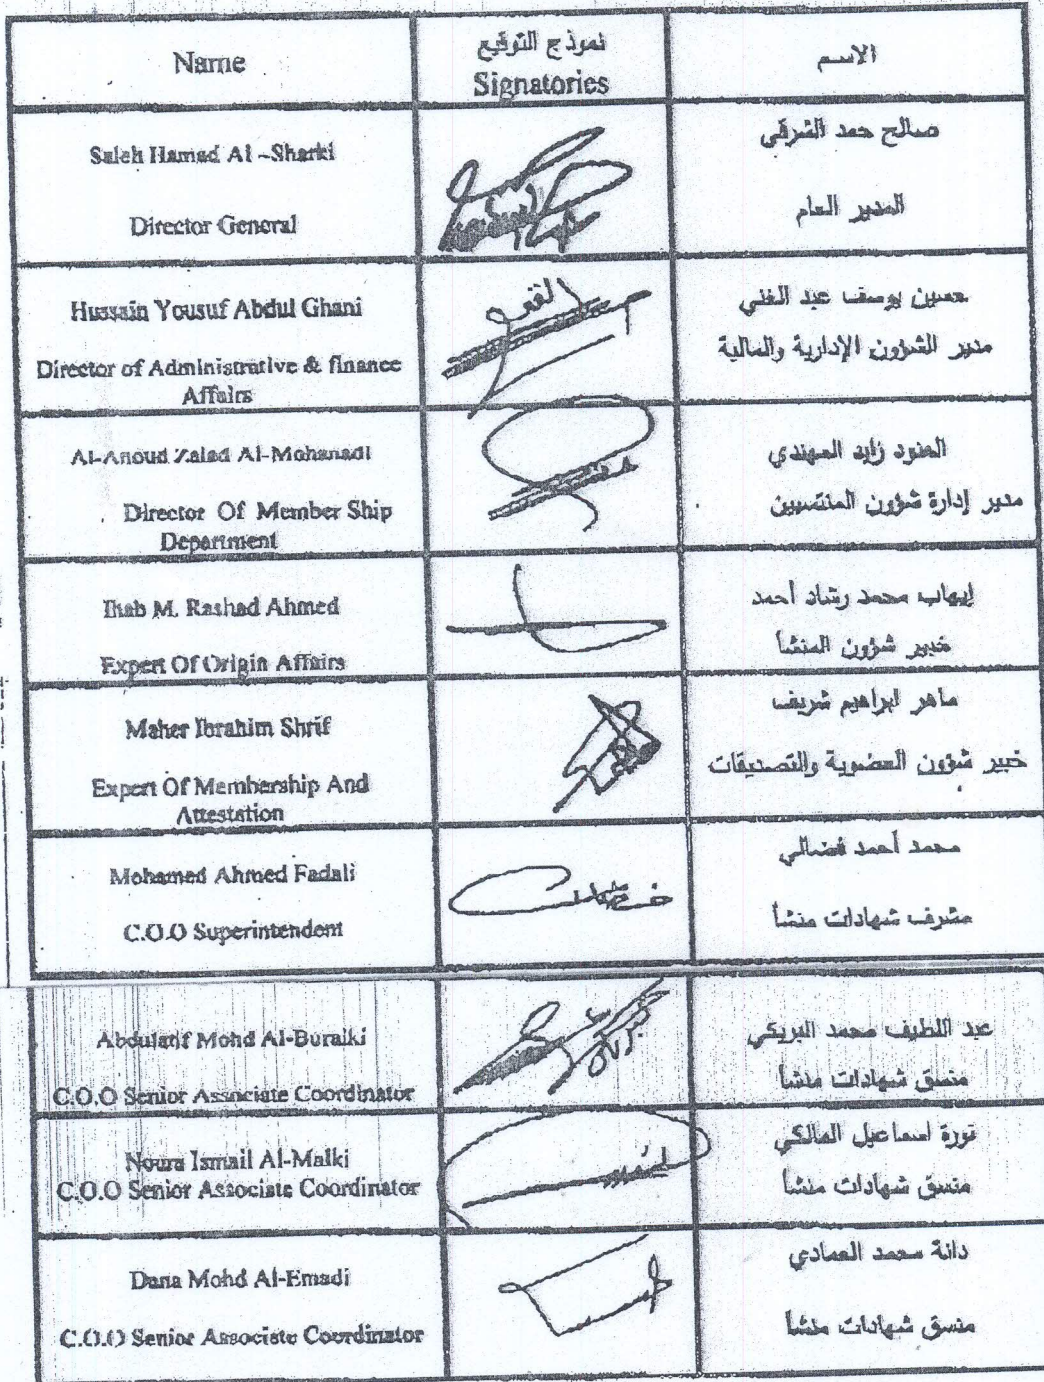 Name
نموذج التوقيع
Signatories
الاسم
Saleh Hamad Al -Sharki
Director General
صالح حمد الشرقي
المدير العام
Hussain Yousuf Abdul Ghani
Director of Administrative & finance
Affairs
حسين يوسف عبد الغني
مدير الشؤون الإدارية والمالية
Al-Anoud Zaiad Al-Mohanadi
Director Of Member Ship
Department
العنود زايد المهندي
مدير إدارة شؤون المنتسبين
Ihab M. Rashad Ahmed
Expert Of Origin Affairs
إيهاب محمد رشاد أحمد
خبير شؤون المنشأ
Maher Ibrahim Shrif
Expert Of Membership And
Attestation
ماهر ابراهيم شريف
خبير شؤون العضوية والتصديقات
Mohamed Ahmed Fadali
C.O.O Superintendent
محمد أحمد فضالي
مشرف شهادات منشأ
Abdulatif Mohd Al-Buraiki
C.O.O Senior Associate Coordinator
عبد اللطيف محمد البريكي
منسق شهادات منشأ
Noura Ismail Al-Malki
C.O.O Senior Associate Coordinator
نورة اسماعيل المالكي
منسق شهادات منشأ
Dana Mohd Al-Emadi
C.O.O Senior Associate Coordinator
دانة محمد العمادي
منسق شهادات منشأ